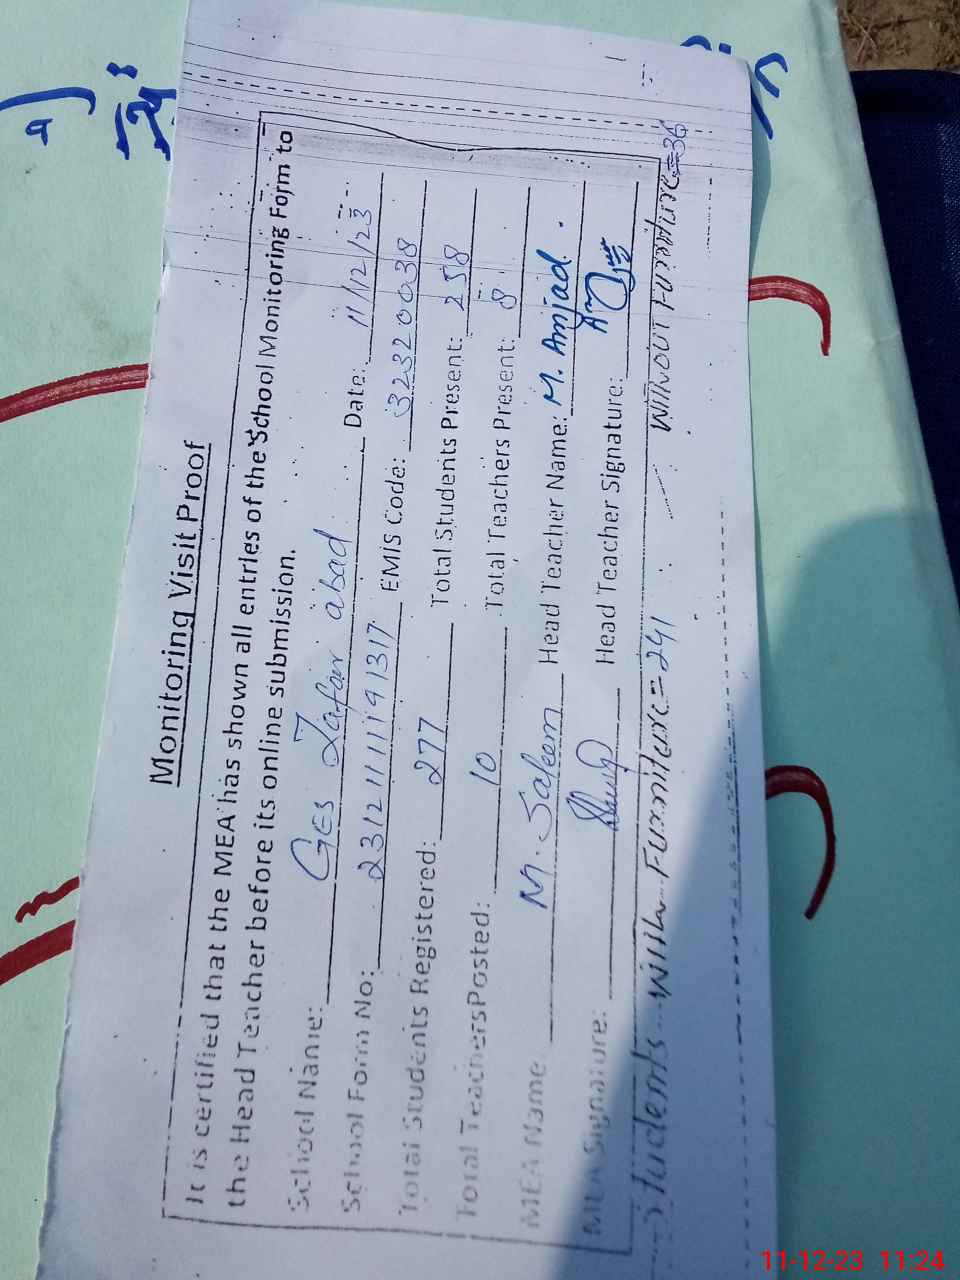 Monitoring Visit Proof
It is certified that the MEA has shown all entries of the School Monitoring Form to
the Head Teacher before its online submission.
School Name: GES Zafar abad Date: 11/12/23
School Form No: 2312111191317 EMIS Code: 32320038
Total Students Registered: 277 Total Students Present: 258
Total Teachers Posted: 10 Total Teachers Present: 8
MEA Name M. Saleem Head Teacher Name: M. Amjad.
MEA Signature: Head Teacher Signature:
Students with Furniture = 241 without Furniture = 36
11-12-23 11:24